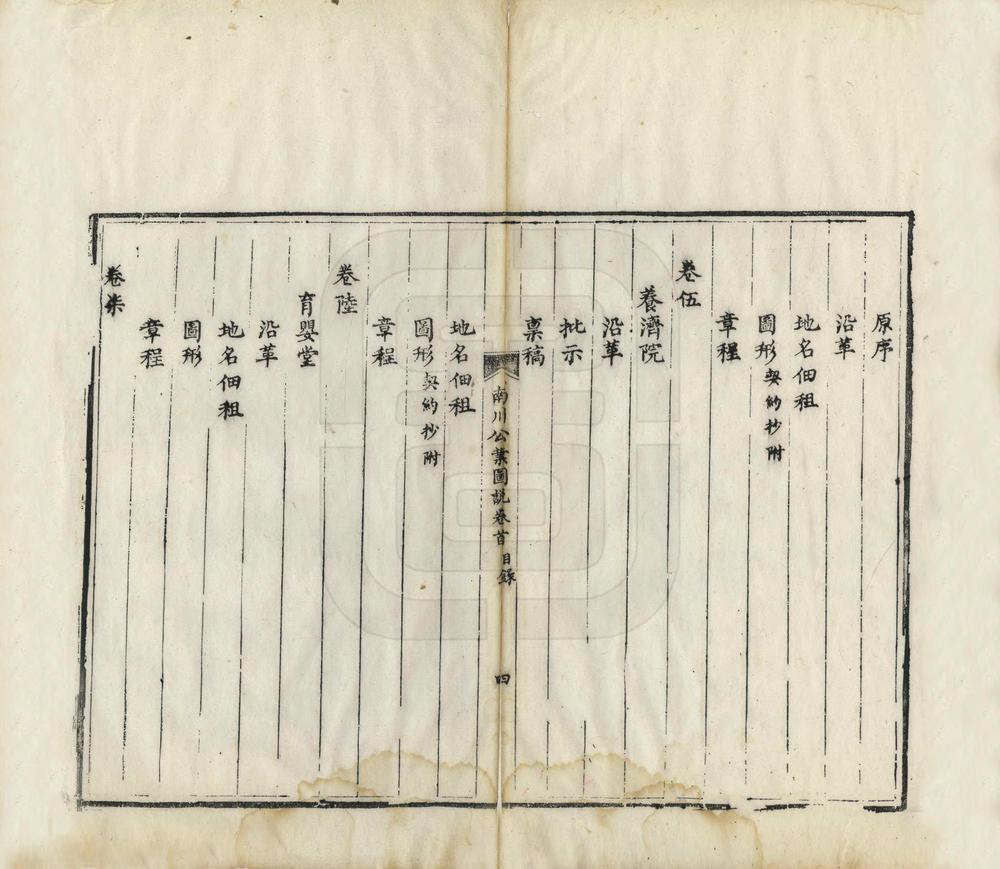 原序
沿革
地名佃租
圖形契約抄附
章程
卷伍
養濟院
沿革
批示
稟稿
南川公業圖説卷首 目錄 四
地名佃租
圖形契約抄附
章程
卷陸
育嬰堂
沿革
地名佃租
圖形
章程
卷柒